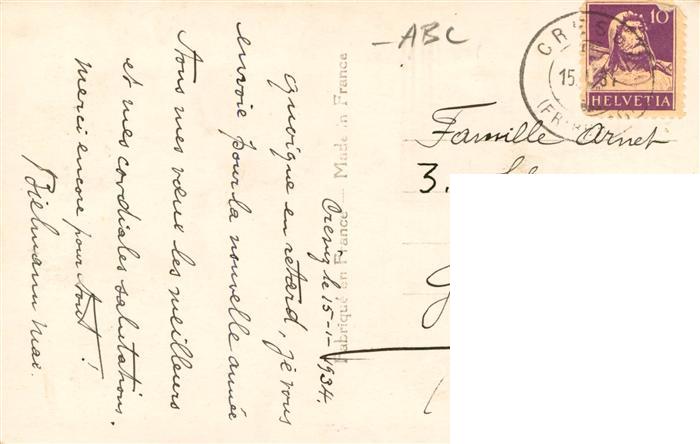 Cresuz le 15-1-1934.
quoique en retard, je vous
envoie pour la nouvelle année
tous mes vœux les meilleurs
et mes cordiales salutations.
merci encore pour tout !
Bielmann
Fabriqué en France — Made in France
—ABC
10
HELVETIA
15
Famille Arnet
3.